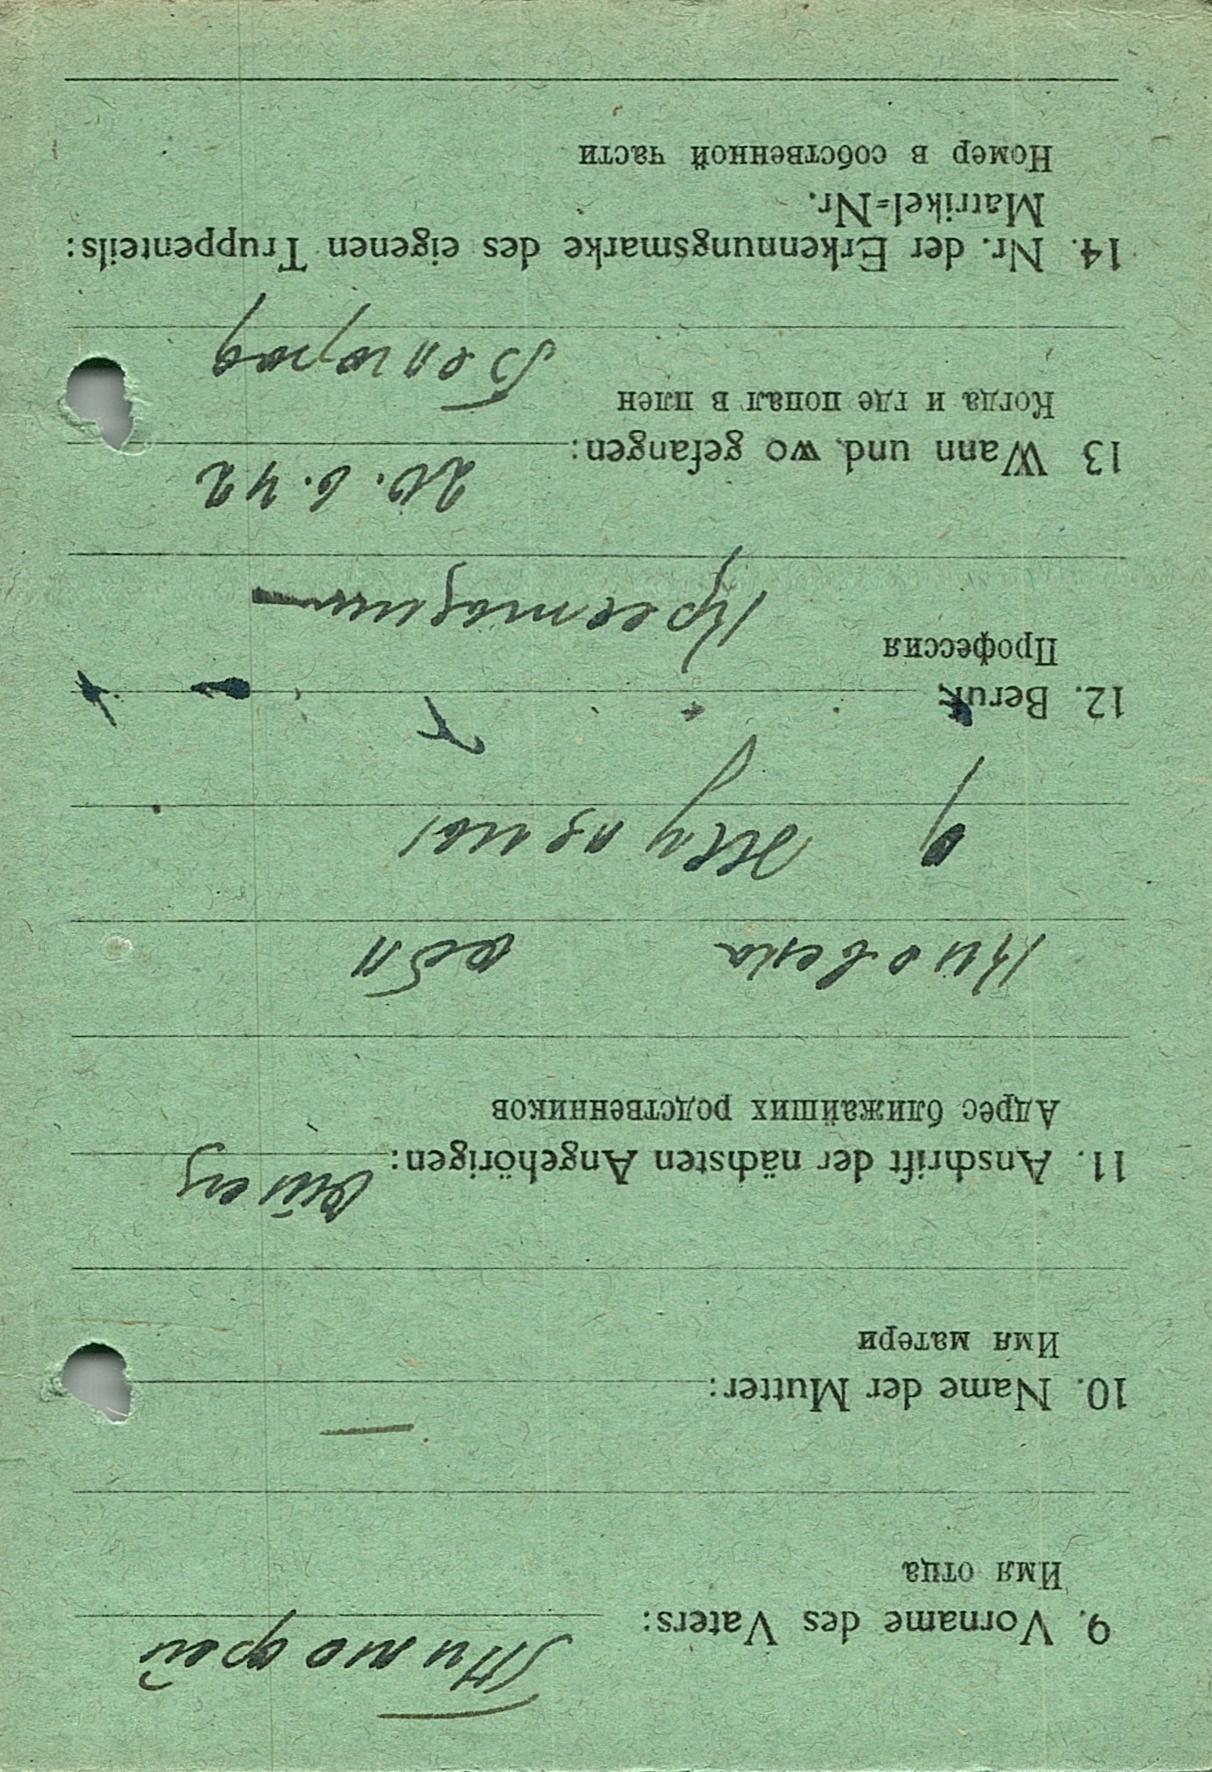 Тимофей
9. Vorname des Vaters:
Имя отца
—
10. Name der Mutter:
Имя матери
11. Anschrift der nächsten Angehörigen:
Адрес ближайших родственников
Киовска обл
12. Beruf
Профессия
20.6.42
13 Wann und wo gefangen:
Когда и где попал в плен
Белгорад
14. Nr. der Erkennungsmarke des eigenen Truppenteils:
Matrikel=Nr.
Номер в собственной части